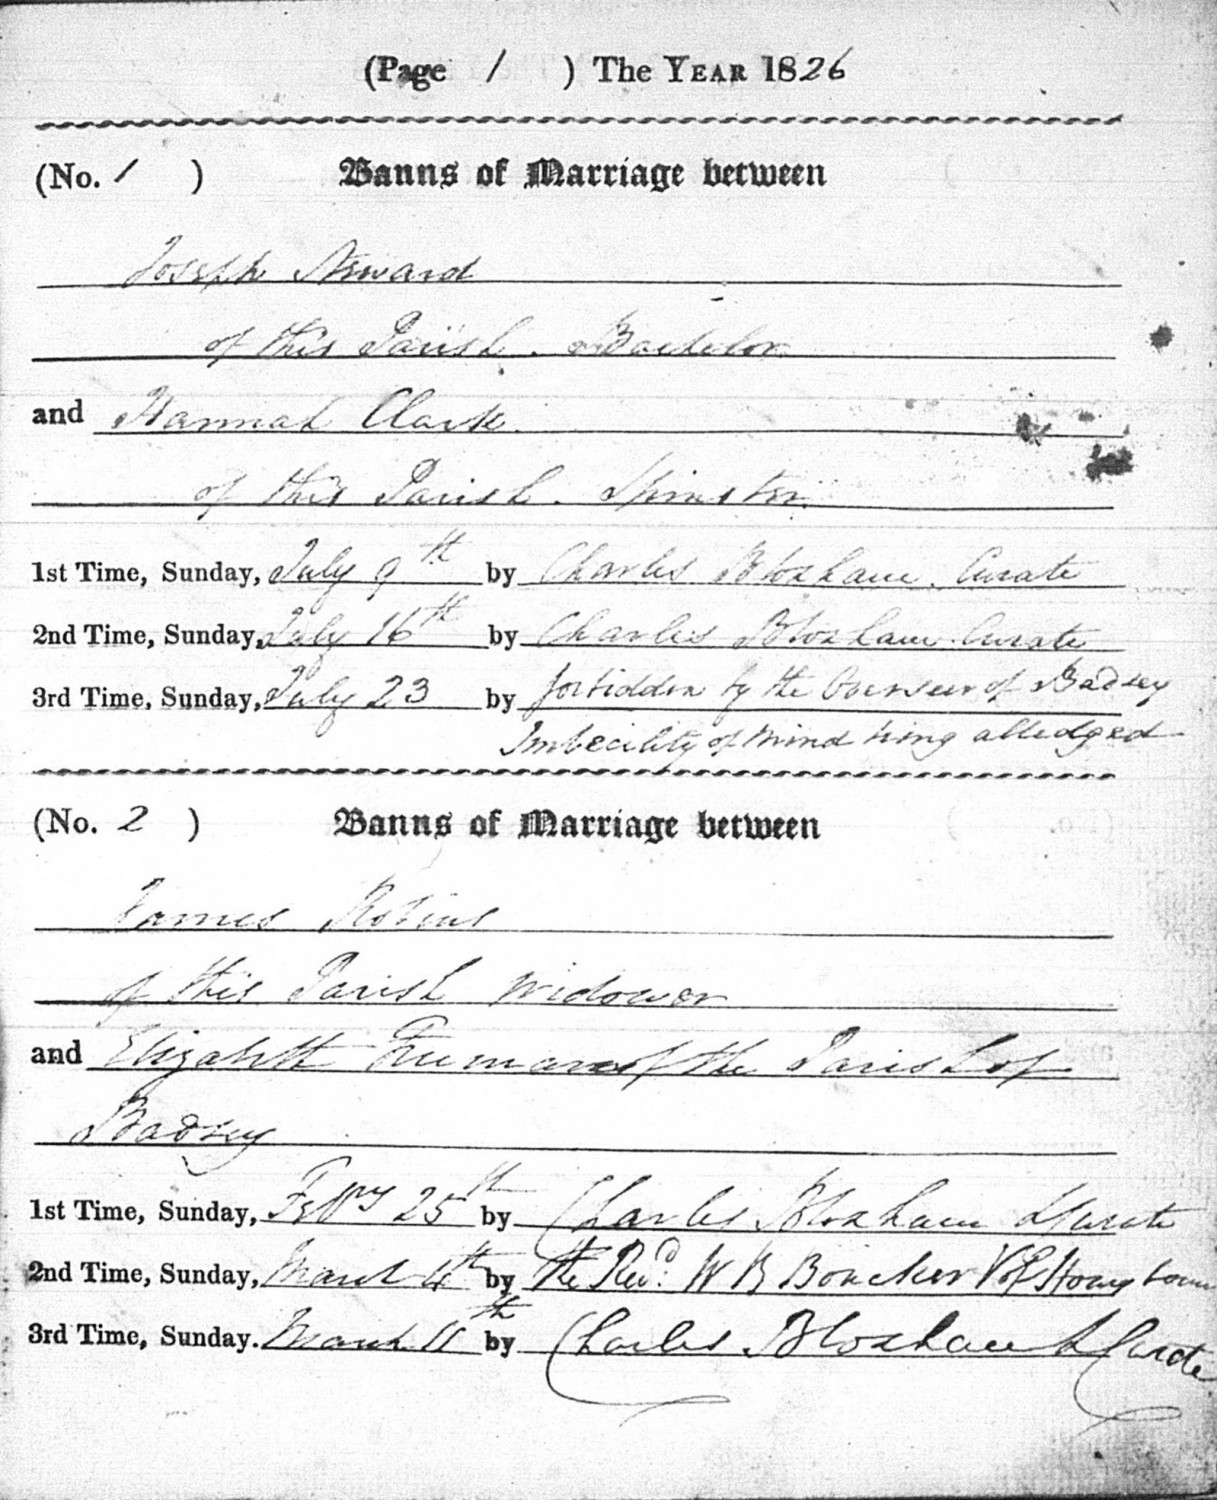 (Page 1 ) The YEAR 1826
(No. 1 ) Banns of Marriage between
Joseph
of this Parish. Bachelor
and Hannah Clark.
of this Parish. Spinster.
1st Time, Sunday, July 9th by Charles Bloxham. Curate
2nd Time, Sunday, July 16th by Charles Bloxham. Curate
3rd Time, Sunday, July 23 by forbidden by the Overseer of Badsey
Imbecility of Mind being alledged
(No. 2 ) Banns of Marriage between
James Robins
of this Parish Widower
and Elizabeth Freeman of the Parish of
Badsey
1st Time, Sunday, Febry 25th by Charles Bloxham Curate
2nd Time, Sunday, March 4th by The Revd. W B Boucker V of
3rd Time, Sunday. March 11th by Charles Bloxham Curate